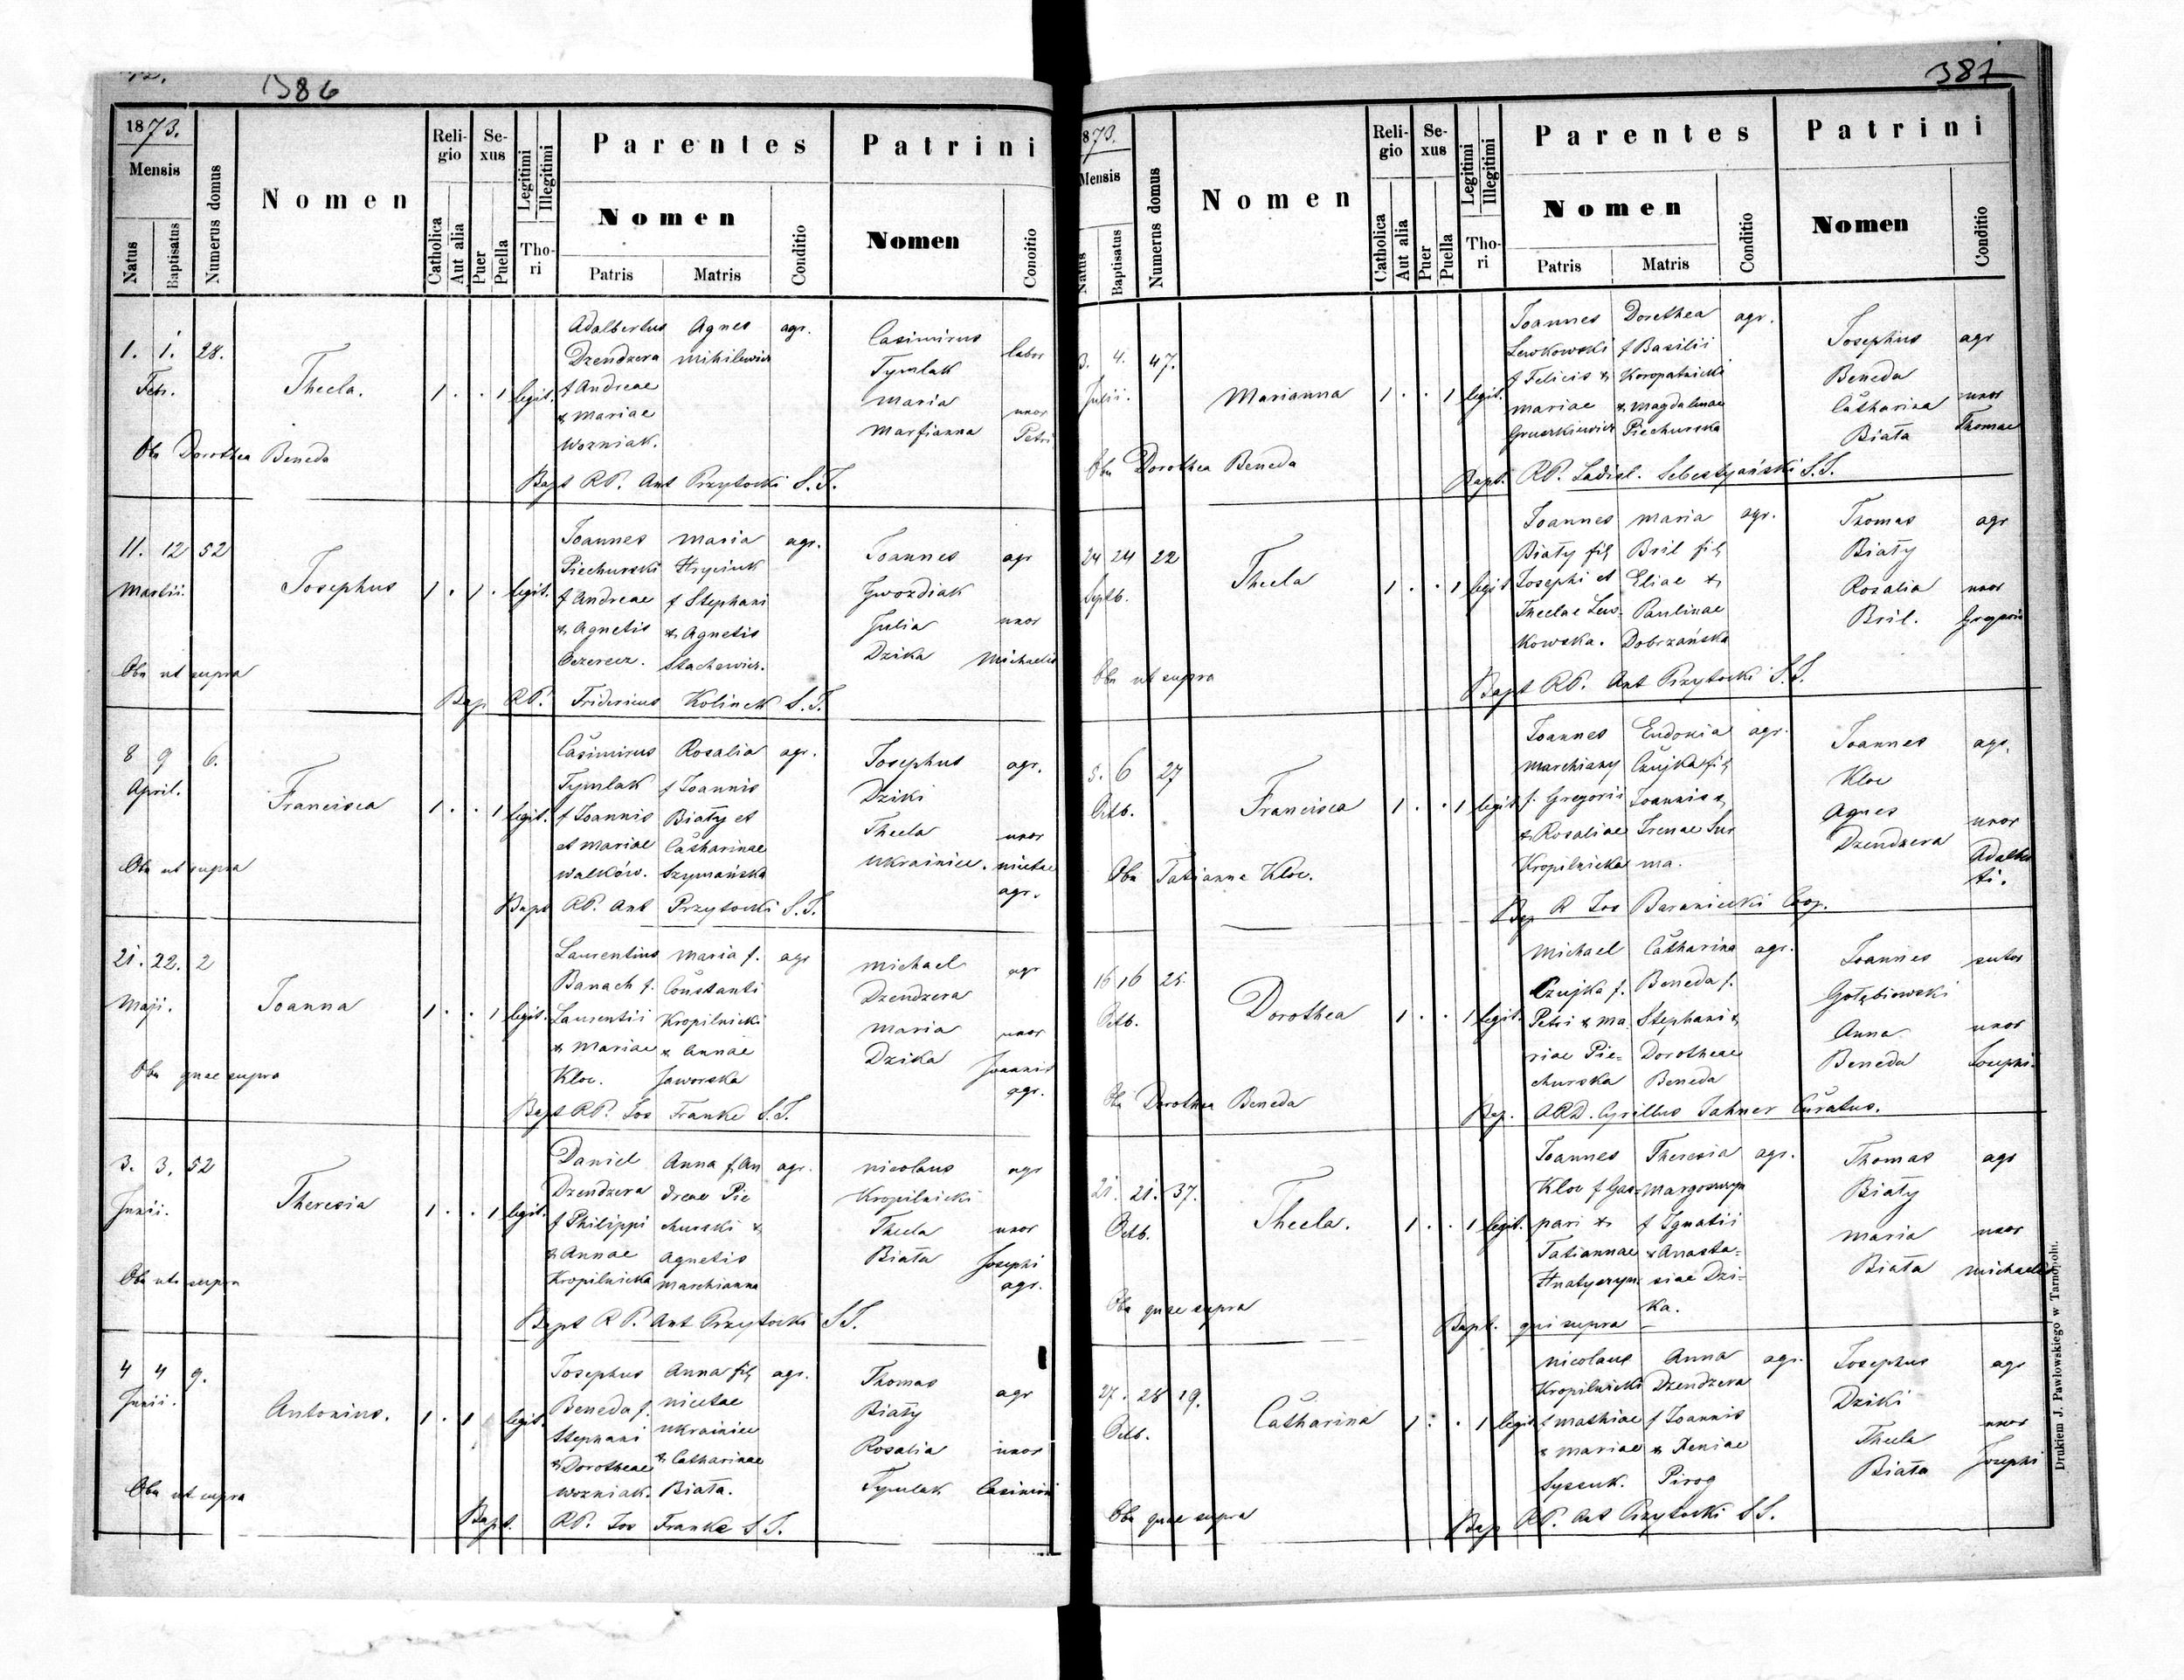 386
1873.
Mensis
Natus
Baptisatus
Numerus domus
Nomen
Religio
Catholica
Aut alia
Sexus
Puer
Puella
Legitimi
Illegitimi
Thori
Parentes
Nomen
Patris
Matris
Conditio
Patrini
Nomen
Conditio
1. 1. 28.
Febr.
Thecla.
1 . . 1 legit.
Adalbertus Agnes agr.
Dzendzera Mihilewicz
f Andreae
& Mariae
Wozniak.
Casimirus
Tymlak labor
Maria
Marfianna uxor Petri
Obs Dorothea Beneda
Bapt RP. Ant Przytocki S.J.
11. 12 52
Martii.
Josephus
1 . 1 . legit.
Joannes Maria agr.
Piechurski Hryciuk
f Andreae f Stephani
& Agnetis & Agnetis
Stachewicz.
Joannes agr
Gwozdiak
Julia uxor
Dzika Michaelis
Obs ut supra
Bap RP. Fridericus Kolinek S.J.
8 9 6.
April.
Francisca
1 . . 1 legit.
Casimirus Rosalia agr.
Tymlak f Joannis
f Joannis Biały et
et Mariae Catharinae
Walków. Szymańska
Josephus agr.
Dziki
Thecla uxor
Ukrainiec. nicetae
agr.
Obs ut supra
Bapt RP. Ant Przytocki S.J.
21. 22. 2
Maji.
Joanna
1 . . 1 legit.
Laurentius Maria f. agr
Banach f. Constanti
Laurentii Kropilnicki
& Mariae & Annae
Kloc. Jaworska
Michael agr
Dzendzera
Maria uxor
Dzika Joannis
agr.
Obs quae supra
Bapt RP. Jos Franke S.J.
3. 3. 52
Junii.
Theresia
1 . . 1 legit.
Daniel Anna f. An agr.
Dzendzera dreae Pie
f Philippi churski &
& Annae Agnetis
Kropilnicka Marchianna
Nicolaus agr
Kropilnicki
Thecla uxor
Biała Josephi
agr.
Obs ut supra
Bapt RP. Ant Przytocki S.J.
4 4 9.
Junii.
Antonius.
1 . 1 legit.
Josephus Anna fil agr.
Beneda f. nicetae
Stephani Ukrainiec
& Dorotheae & Catharinae
Wozniak. Biała.
Thomas agr
Biały
Rosalia uxor
Tymlak Casimiri
Obs ut supra
Bapt. RP. Jos Franke S.J.
387
1873.
Mensis
Natus
Baptisatus
Numerus domus
Nomen
Religio
Catholica
Aut alia
Sexus
Puer
Puella
Legitimi
Illegitimi
Thori
Parentes
Nomen
Patris
Matris
Conditio
Patrini
Nomen
Conditio
3. 4. 47.
Julii.
Marianna
1 . . 1 legit.
Joannes Dorothea agr.
Lewkowski f Basilii
f Felicis & Koropatnicki
Mariae & Magdalenae
Gruszkiewicz Piechurska
Josephus agr
Beneda
Catharina uxor
Biała Thomae
Obs Dorothea Beneda
Bapt. RP. Ladisl. Sebestyański S.J.
24 24 22
Septb.
Thecla
1 . . 1 legit
Joannes Maria agr.
Biały fil Bril fil
Josephi et Eliae &
Theclae Lew- Paulinae
kowska. Dobrzańska
Thomas agr
Biały
Rosalia uxor
Bril. Gregorii
Obs ut supra
Bapt RP. Ant Przytocki S.J.
5. 6 27
Octb.
Francisca
1 . . 1 legit
Joannes Eudonia agr.
Marchiany Czujka fil
f. Gregorii Joannis &
& Rosaliae Irenae Sur
Kropilnicka ma.
Joannes agr.
Kloc
Agnes uxor
Dzendzera Adalber
ti.
Obs Tatianna Kloc.
Bap R Jos Baraniecki Coop.
16 16 25.
Octb.
Dorothea
1 . . 1 legit.
Michael Catharina agr.
Czujka f. Beneda f.
Petri & Ma Stephani &
riae Pie= Dorotheae
churska Beneda
Joannes sutor
Gołębiowski
Anna uxor
Beneda Josephi.
Obs Dorothea Beneda
Bap. ARD. Cyrillus Jahner Curatus.
21. 21. 37.
Octb.
Thecla.
1 . . 1 legit.
Joannes Theresia agr.
Kloc f Gas=
pari & f Ignatii
Tatiannae & Anasta=
siae Dzi=
ka.
Thomas agr
Biały
Maria uxor
Biała Michaelis
Obs quae supra
Bapt. qui supra
27. 28 19.
Octb.
Catharina
1 . . 1 legit
Nicolaus Anna agr.
Kropilnicki Dzendzera
f Mathiae f Joannis
& Mariae & Xeniae
Pirog
Josephus agr
Dziki
Thecla uxor
Biała Josephi
Obs quae supra
Bap RP. Ant Przytocki S.J.
Drukiem J. Pawłowskiego w Tarnopolu.